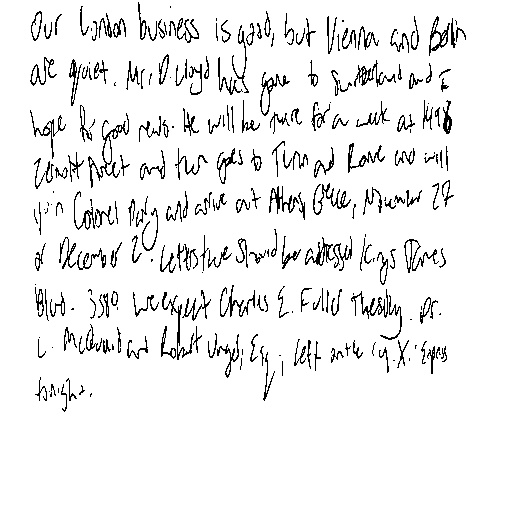 Our London business is good, but Vienna and Berlin
are quiet. Mr. D. Lloyd has gone to Switzerland and I
hope for good news. He will be there for a week at 1496
Zermott Street and then goes to Turin and Rome and will
join Colonel Parry and arrive at Athens, Greece, November 27
or December 2. Letters there should be addressed King James
Blvd. 3580. We expect Charles E. Fuller Tuesday. Dr.
L. McQuaid and Robert Unger, Esq., left on the "Y.X." Express
tonight.